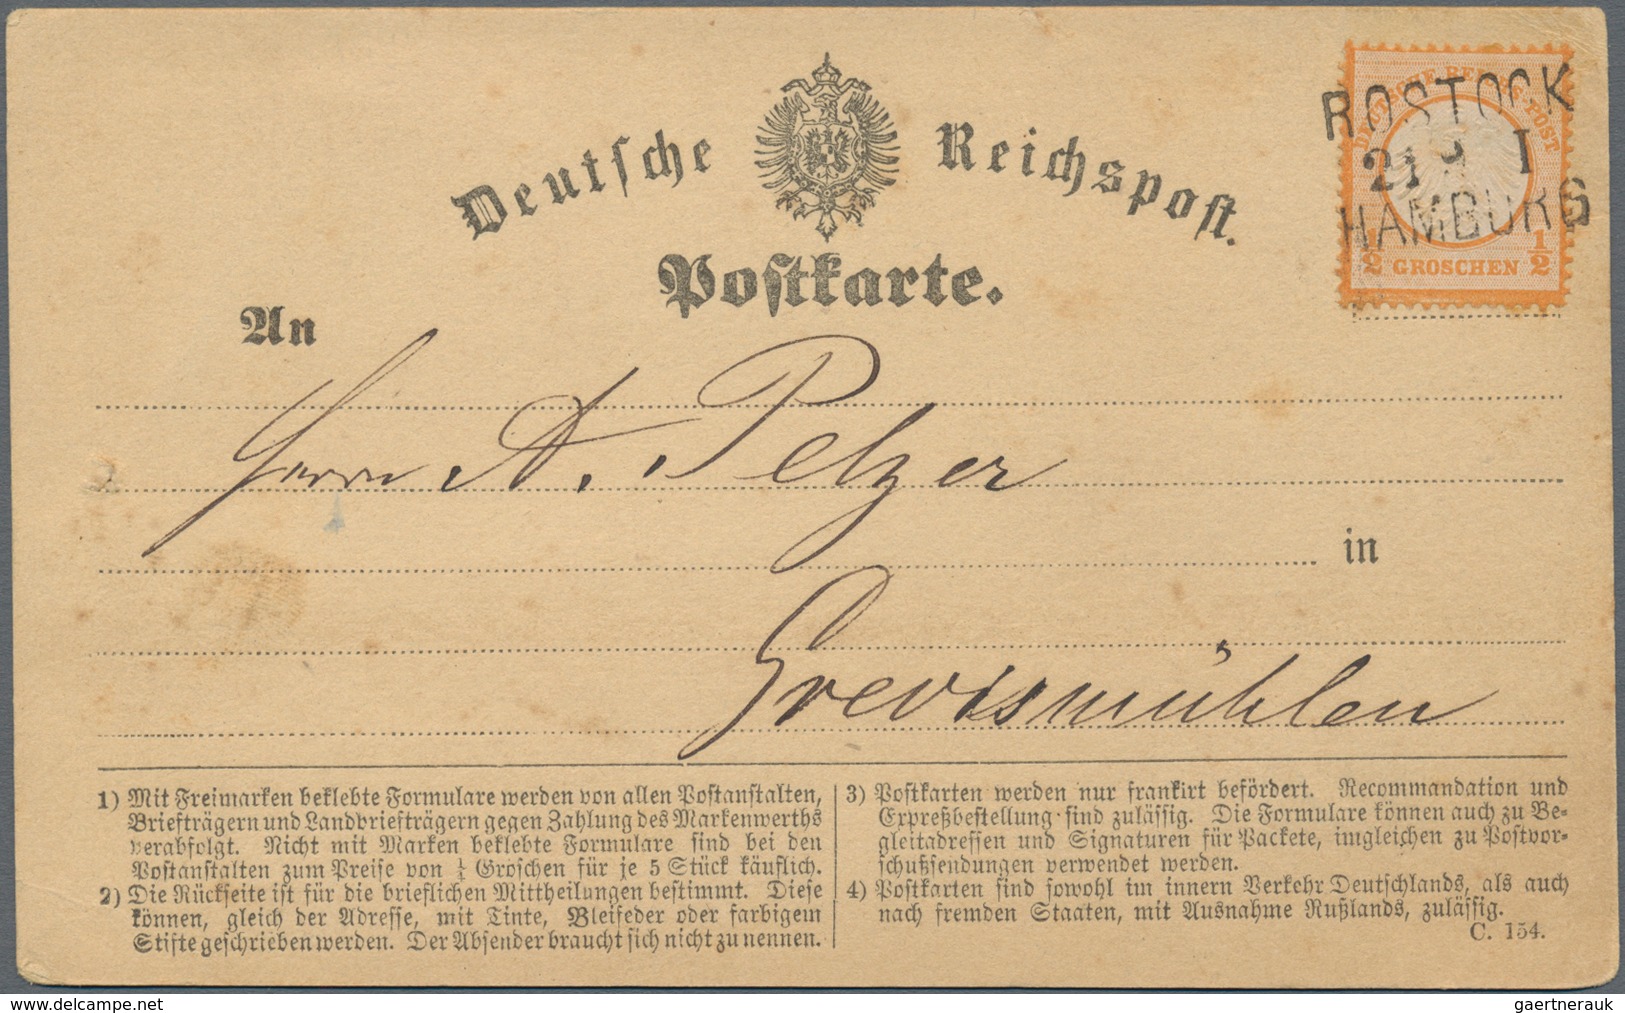 Deutsche Reichspost.
Postkarte.
DEUTSCHE REICHS-POST
1/2 GROSCHEN 1/2
ROSTOCK
21 I
HAMBURG
An
Herrn A. Pelzer
in
Grevismühlen
1) Mit Freimarken beklebte Formulare werden von allen Postanstalten,
Briefträgern und Landbriefträgern gegen Zahlung des Markenwerths
verabfolgt. Nicht mit Marken beklebte Formulare sind bei den
Postanstalten zum Preise von ¼ Groschen für je 5 Stück käuflich.
2) Die Rückseite ist für die brieflichen Mittheilungen bestimmt. Diese
können, gleich der Adresse, mit Tinte, Bleifeder oder farbigem
Stifte geschrieben werden. Der Absender braucht sich nicht zu nennen.
3) Postkarten werden nur frankirt befördert. Recommandation und
Expreßbestellung sind zulässig. Die Formulare können auch zu Be-
gleitadressen und Signaturen für Packete, imgleichen zu Postvor-
schußsendungen verwendet werden.
4) Postkarten sind sowohl im innern Verkehr Deutschlands, als auch
nach fremden Staaten, mit Ausnahme Rußlands, zulässig.
C. 154.
www.delcampe.net
gaertnerauk